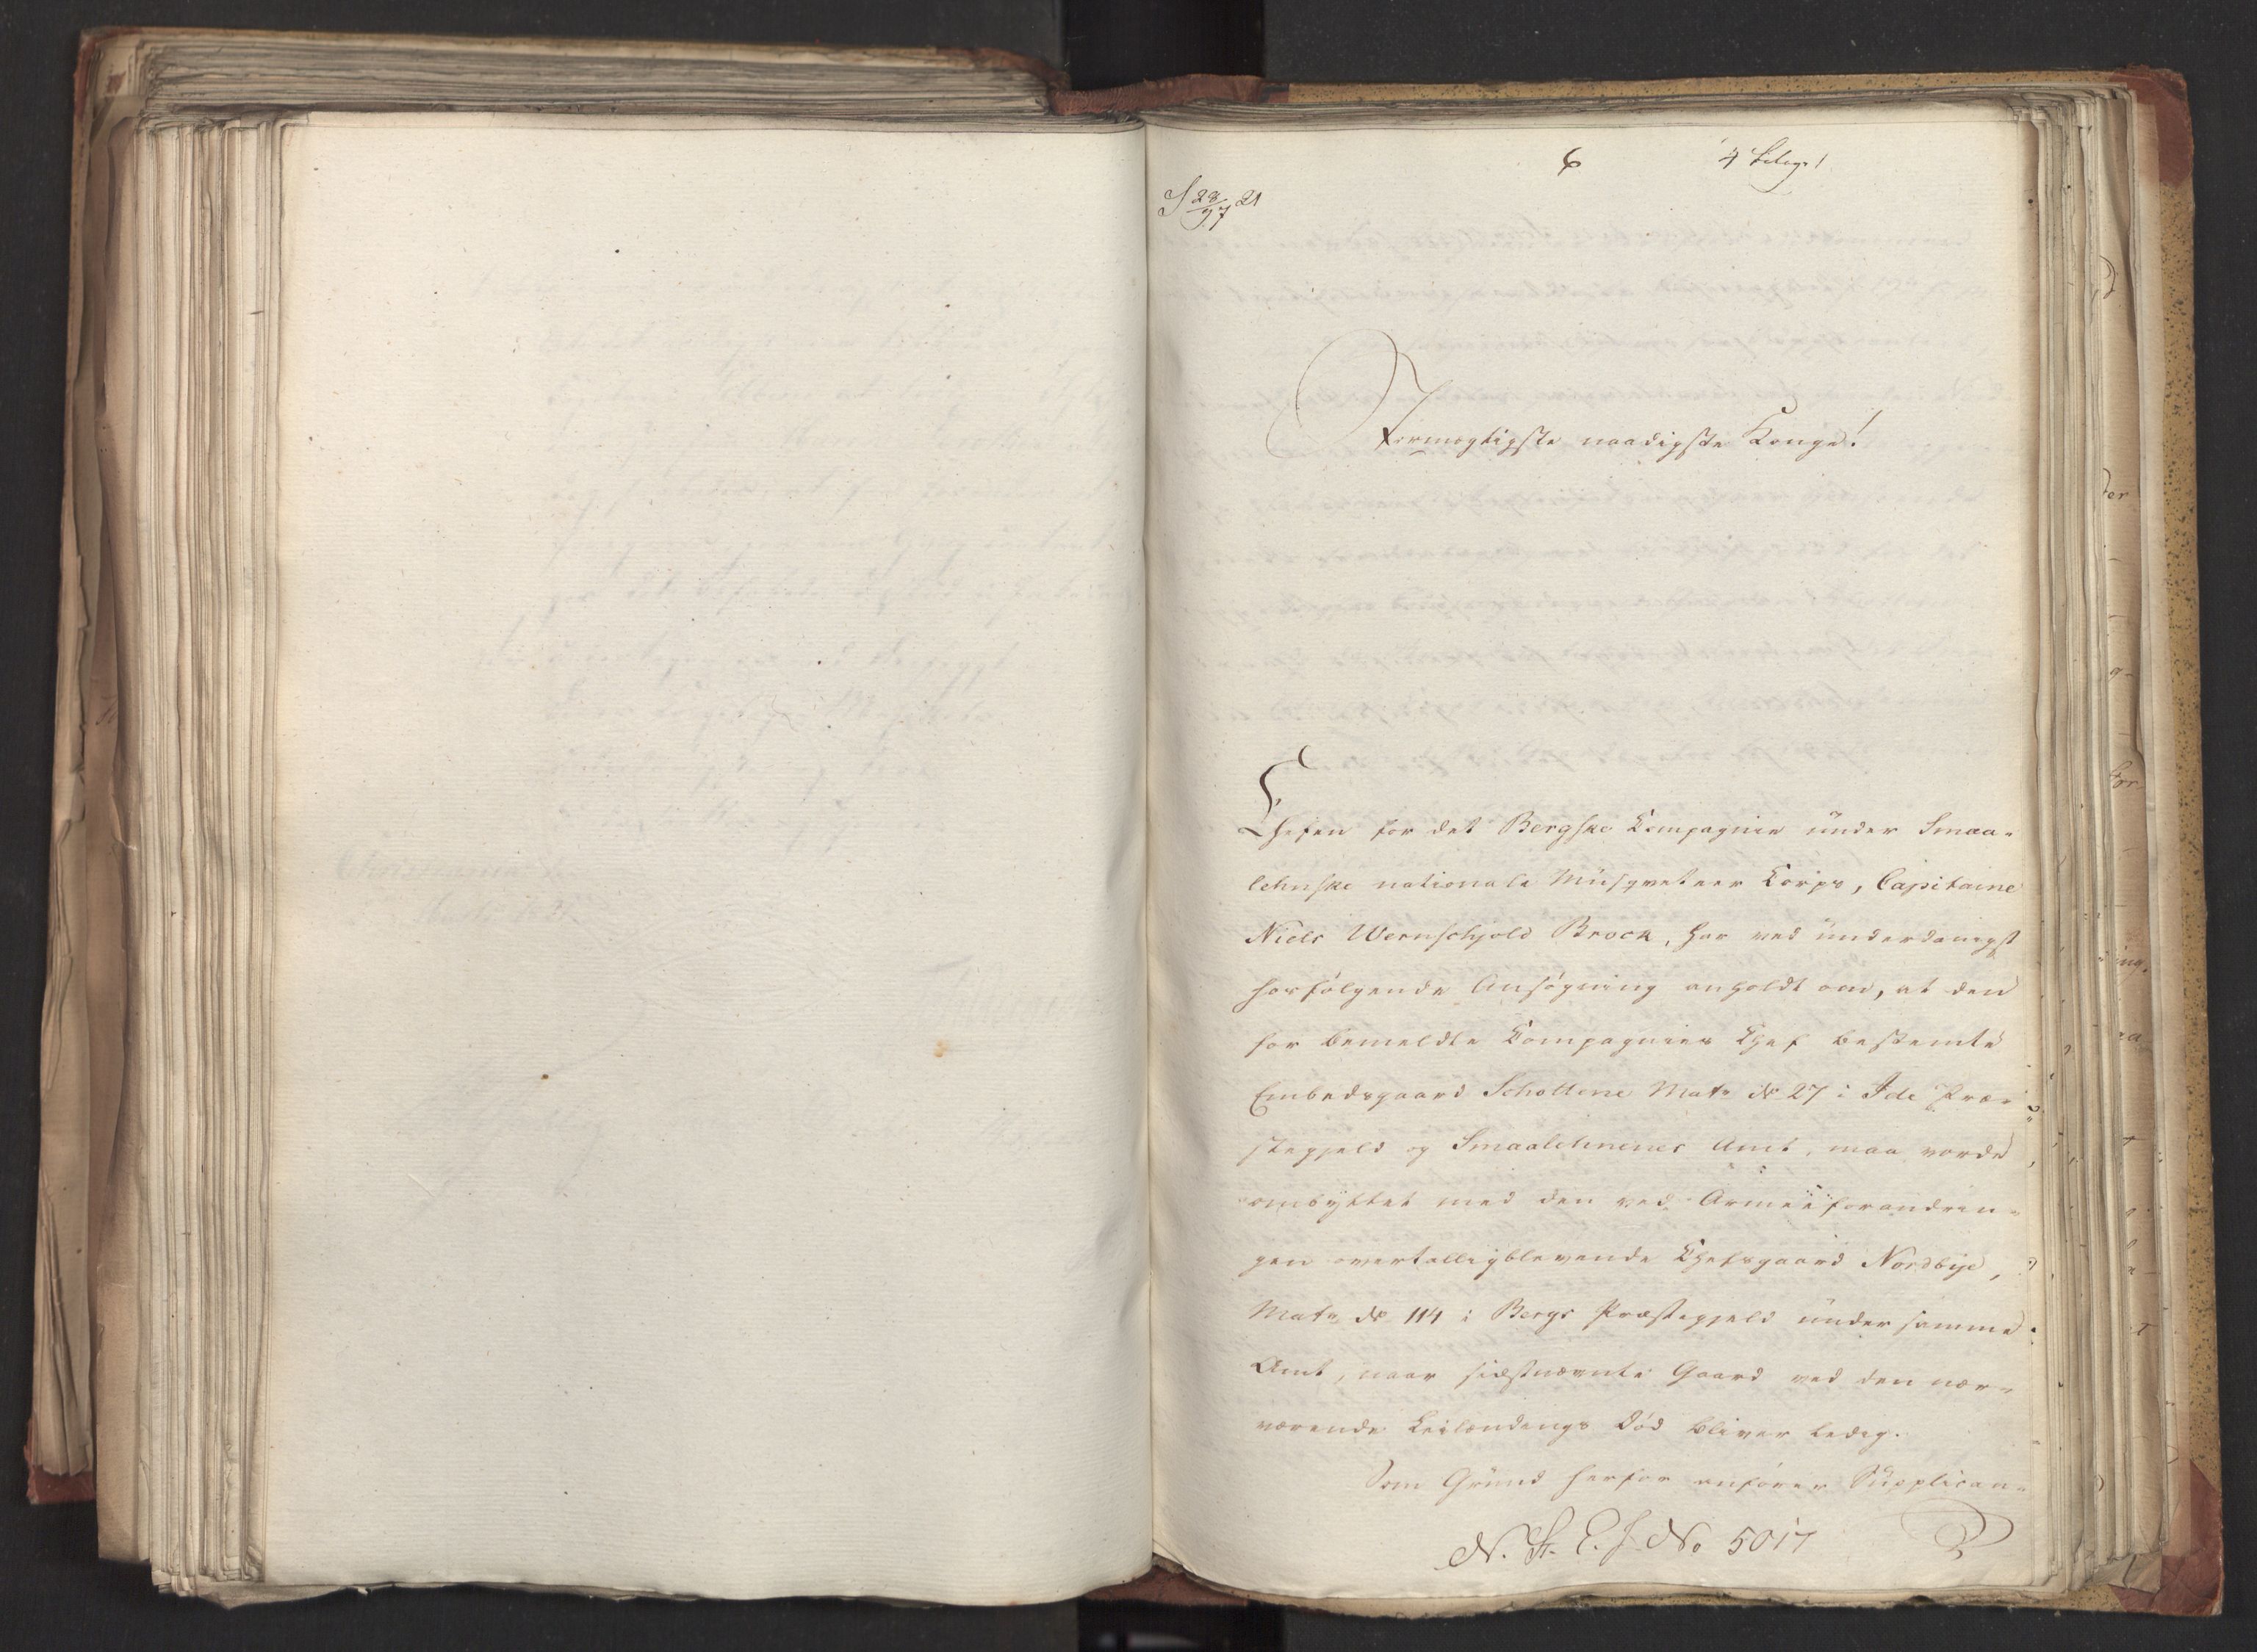 6 4 Bilage!
S 28/97 21
Stormægtigste naadigste Konge!
Chefen for det Bergske Compagnie under Smaa-
lehnske nationale Musqveteer Corps, Capitaine
Niels Wernschjold Brock, har ved underdanigst
hosfølgende Ansøgning anholdt om, at den
for bemeldte Compagnies Chef bestemte
Embedsgaard Schollene Matr No 27 i Ide Præ-
stegjeld og Smaalehnenes Amt, maa vorde
ombyttet med den ved Armeeforandrin-
gen overtalligblevende Chefsgaard Nordbye,
Matr No 114 i Bergs Præstegjeld under samme
Amt, naar sidstnævnte Gaard ved den nær-
værende Leilændings Død bliver ledig.
Som Grund herfor anfører Supplican-
N. St. E. J. No 5017